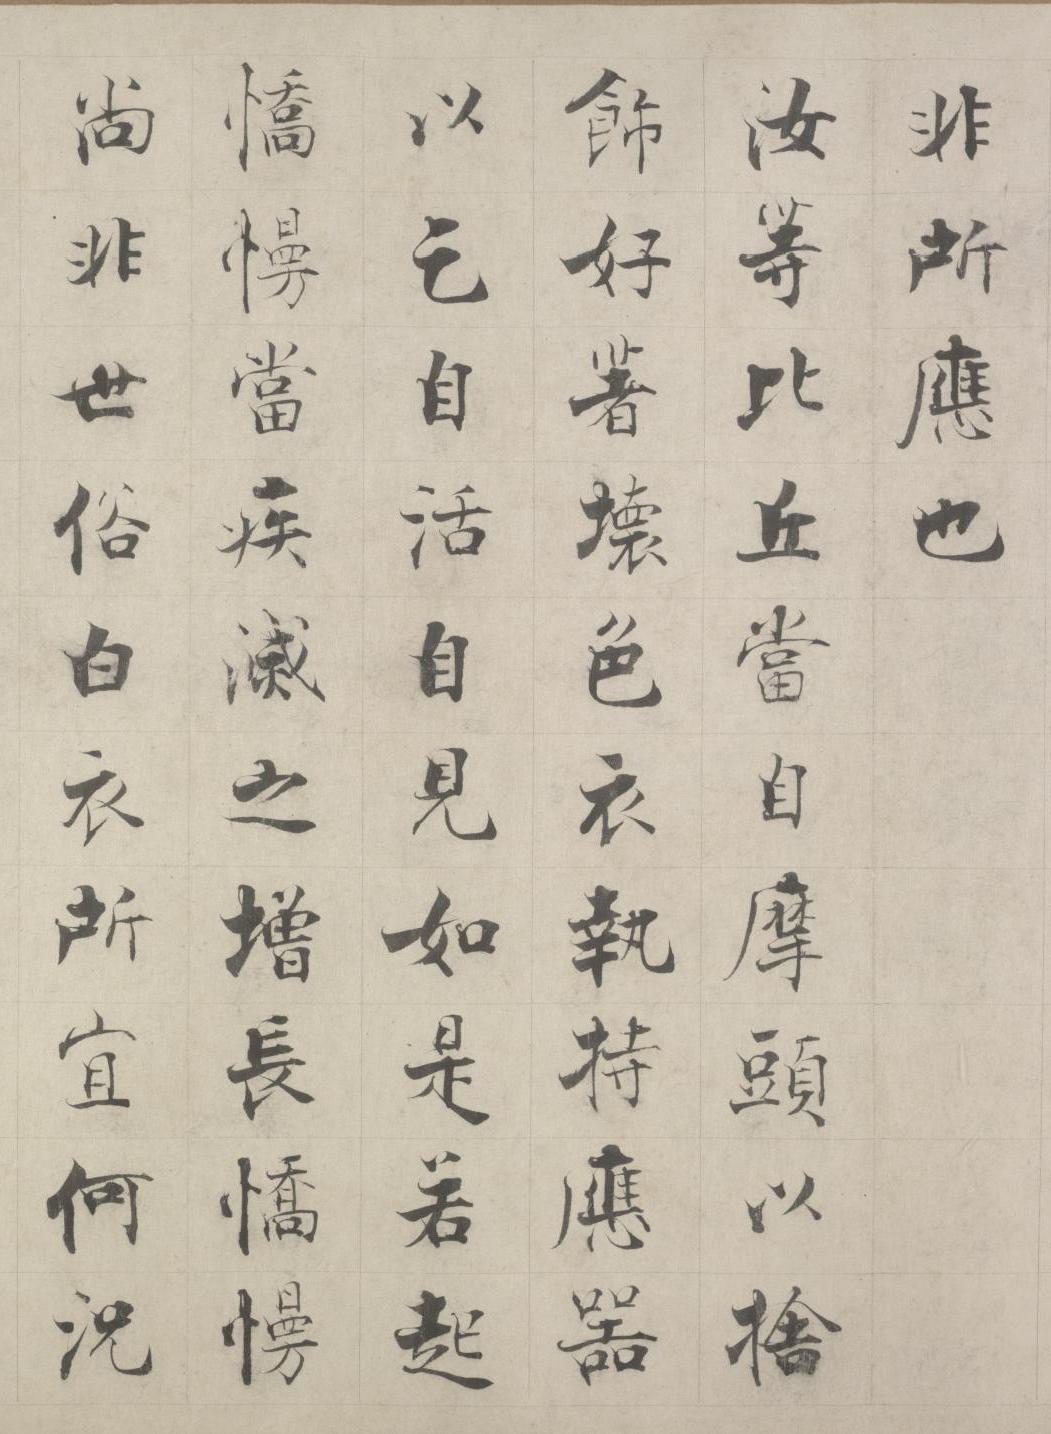 非所應也
汝等比丘當自摩頭以捨
飾好著壞色衣執持應器
以乞自活自見如是若起
憍慢當疾滅之增長憍慢
尚非世俗白衣所宜何況